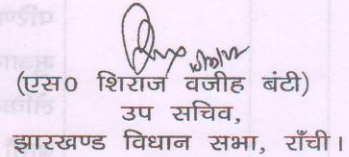 (एस० शिराज वजीह बंटी)
उप सचिव,
झारखण्ड विधान सभा, राँची।